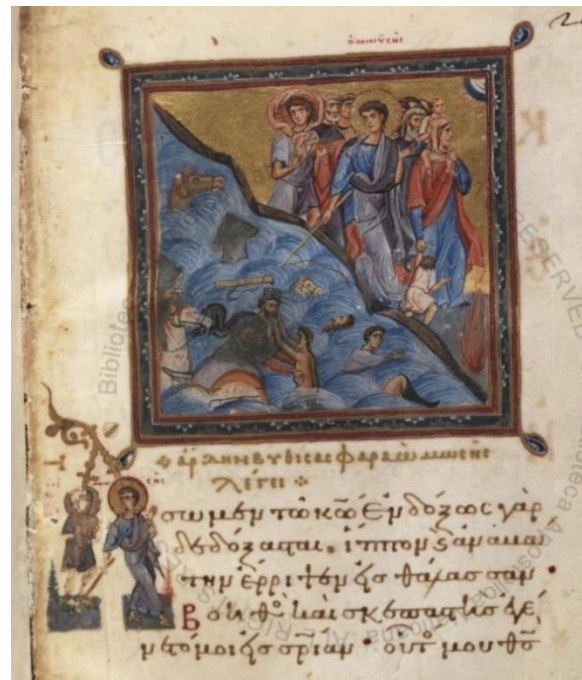 ὁ μωυσῆς
+ ἄρδην βυθίσας φαραὼ μωσῆς
λέγει +
σωμεν τῷ κῶ ἐνδόξως γὰρ
δεδόξασται. ἵππον ϗ ἀναβά
την ἔρριψεν εἰς θάλασσαν
Βοηθὸς καὶ σκεπαστὴς ἐγέ
νετό μοι εἰς σριαν · οὗτός μου θς